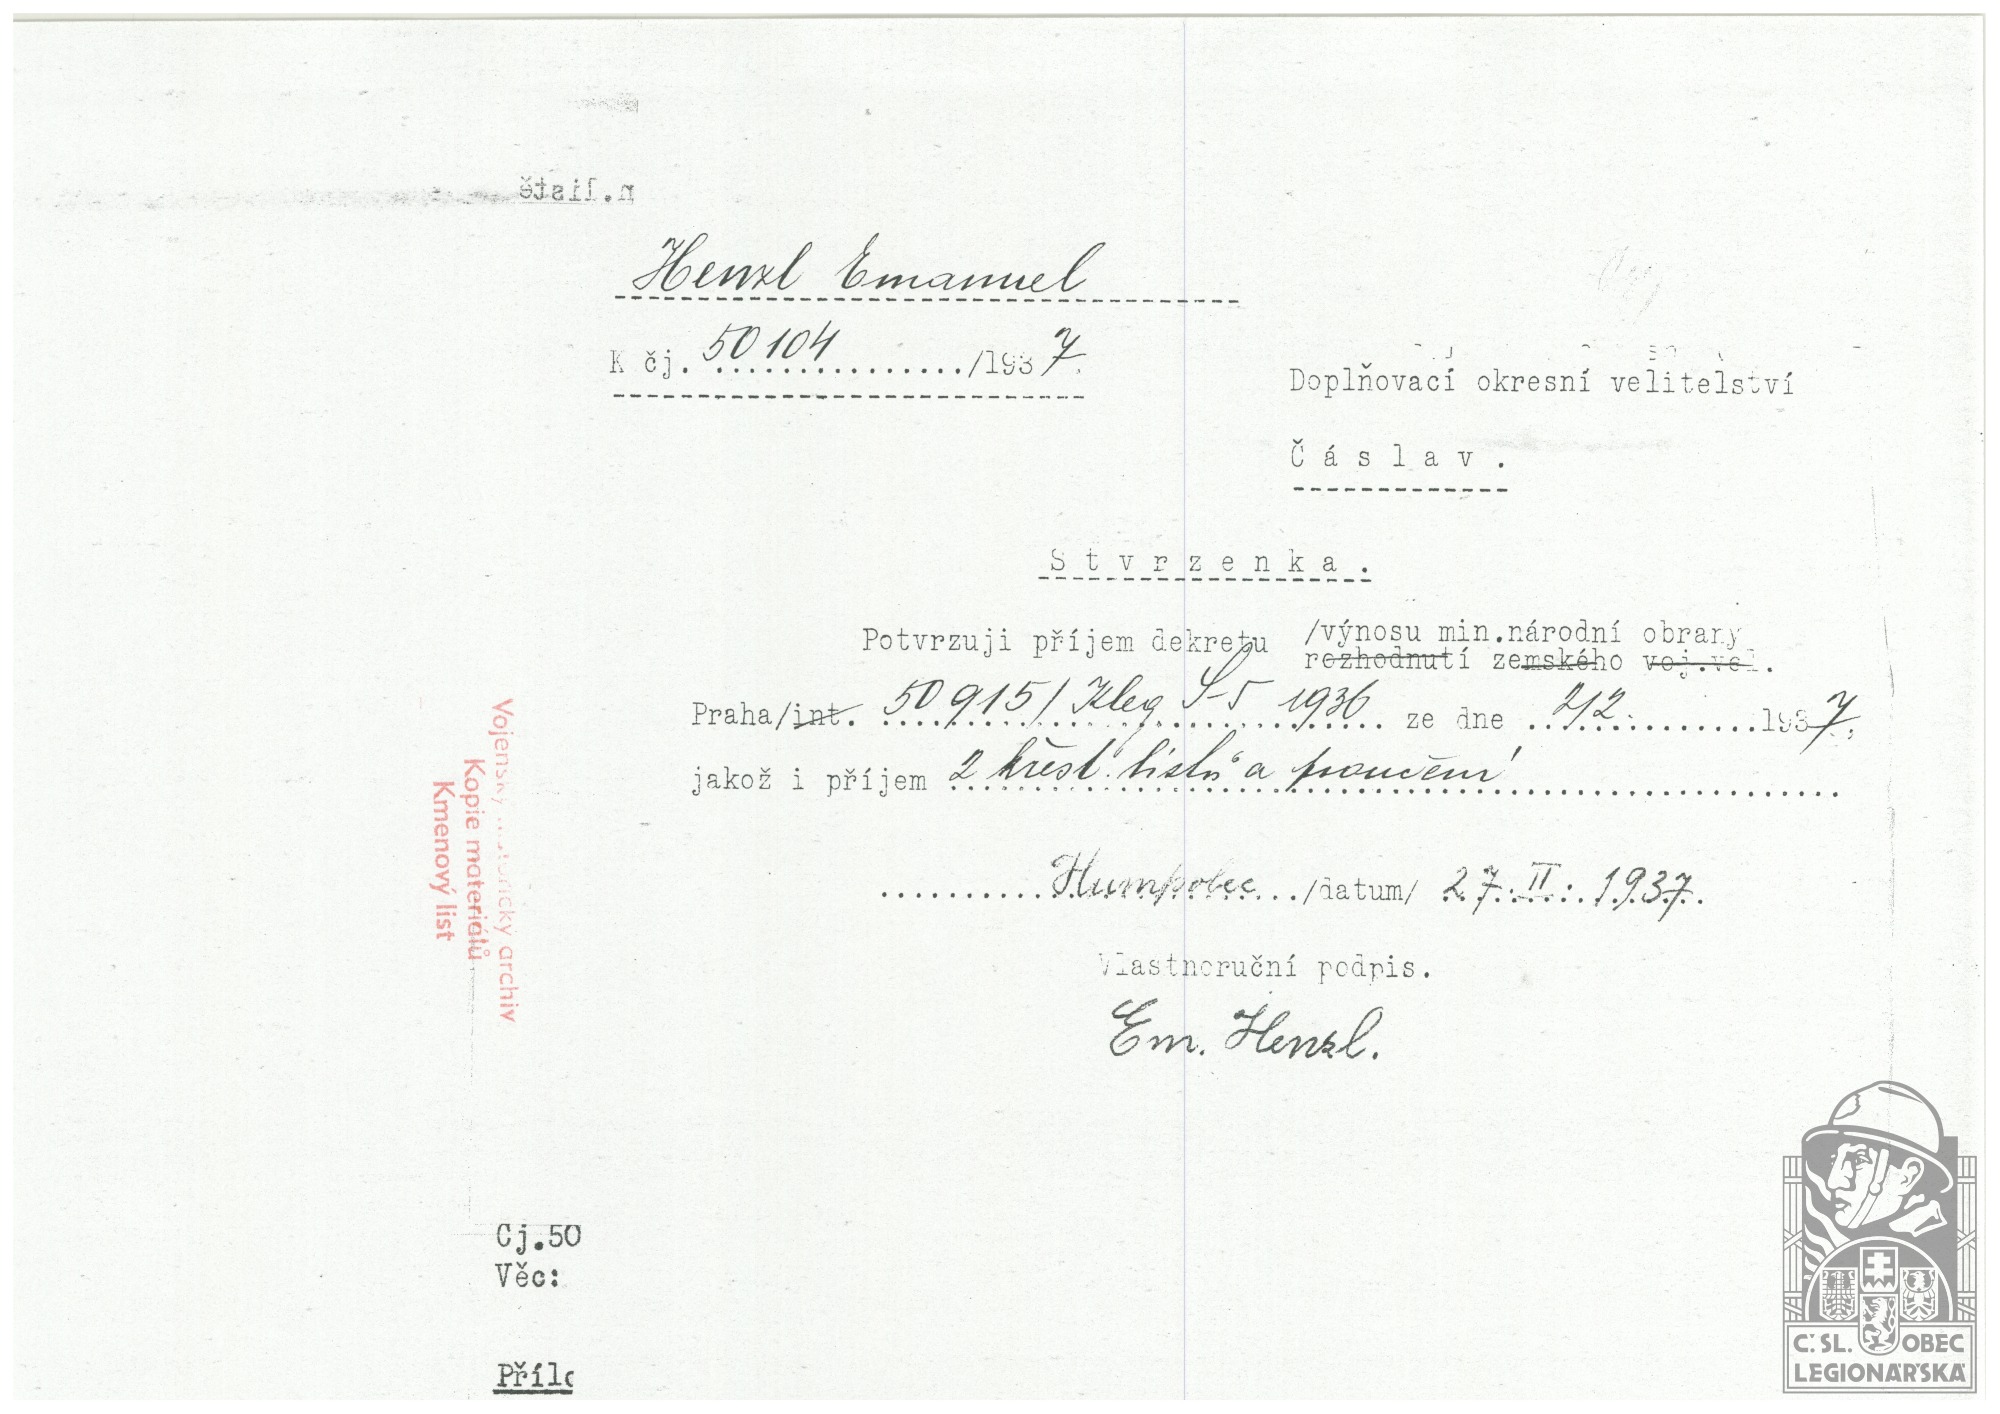 n.listě
Henzl Emanuel
K čj. 50104 /1937.
Doplňovací okresní velitelství
Čáslav.
Stvrzenka.
Potvrzuji příjem dekretu /výnosu min.národní obrany
rozhodnutí zemského voj.vel.
Praha/int. 50915/Kleg 1936 ze dne 2/2. 1937.
jakož i příjem 2 křest. listů a poučení
Humpolec /datum/ 27. II. 1937.
Vlastnoruční podpis.
Em. Henzl.
Vojenský historický archiv
Kopie materiálů
Kmenový list
Čj.50
Věc:
Přílo
Č.SL. OBEC
LEGIONÁŘSKÁ